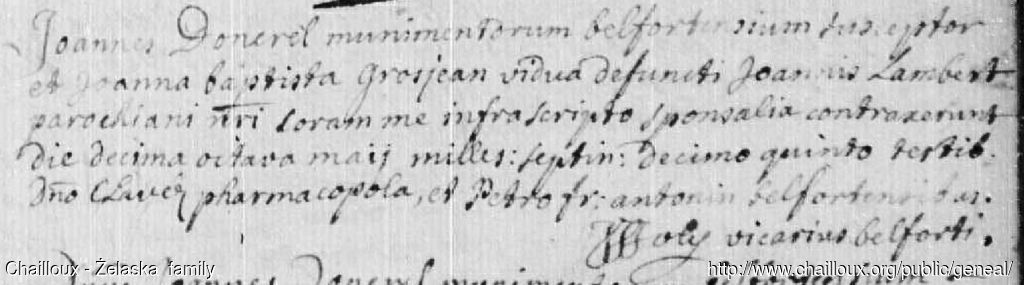 Joannes Donerel munimentorum belfortensium susceptor
et Joanna baptista Grosjean vidua defuncti Joannis Lambert
parochiani nri coram me infrascripto sponsalia contraxerunt
die decima octava maij milles: septin: decimo quinto testib.
Dno pharmacopola, et Petro fr: antonin belfortensibus.
vicarius belforti.
Chailloux - Żelaska family
http://www.chailloux.org/public/geneal/
Joannes Donerel